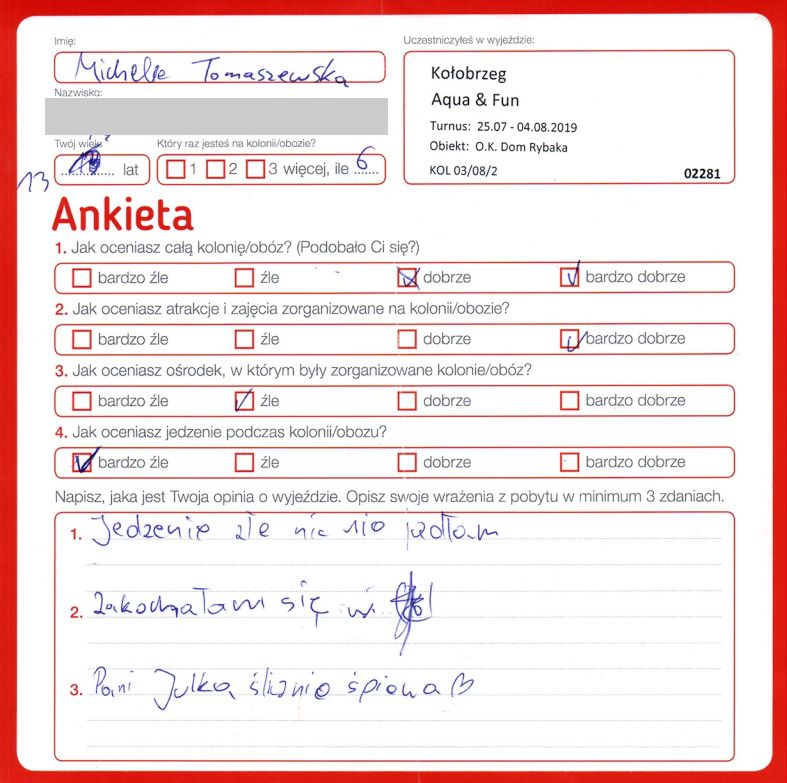 Imię:
Michelle Tomaszewska
Nazwisko:
Uczestniczyłeś w wyjeździe:
Kołobrzeg
Aqua & Fun
Turnus: 25.07 - 04.08.2019
Obiekt: O.K. Dom Rybaka
KOL 03/08/2 02281
Twój wiek:
13 lat
Który raz jesteś na kolonii/obozie?
1 2 3 więcej, ile 6
Ankieta
1. Jak oceniasz całą kolonię/obóz? (Podobało Ci się?)
bardzo źle źle dobrze bardzo dobrze
2. Jak oceniasz atrakcje i zajęcia zorganizowane na kolonii/obozie?
bardzo źle źle dobrze bardzo dobrze
3. Jak oceniasz ośrodek, w którym były zorganizowane kolonie/obóz?
bardzo źle źle dobrze bardzo dobrze
4. Jak oceniasz jedzenie podczas kolonii/obozu?
bardzo źle źle dobrze bardzo dobrze
Napisz, jaka jest Twoja opinia o wyjeździe. Opisz swoje wrażenia z pobytu w minimum 3 zdaniach.
1. Jedzenie złe nic nie jadłam
2. Zakochałam się w
3. Pani Julka ślicznie śpiewa